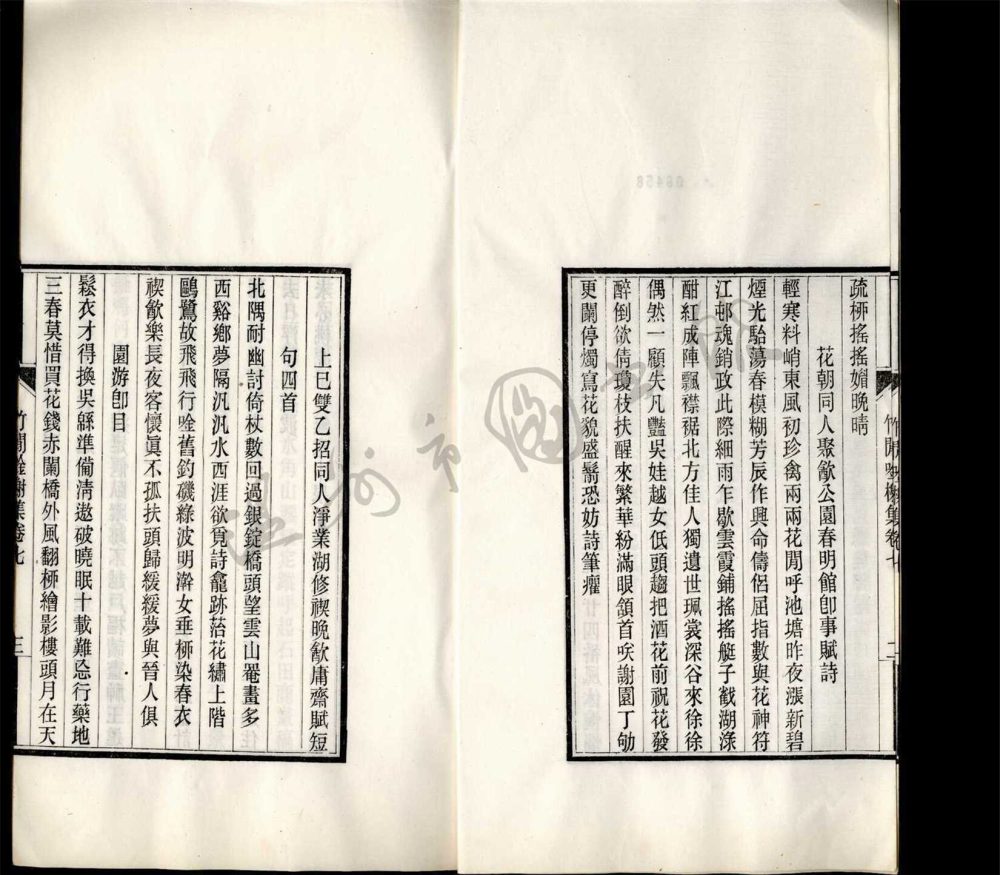 疏桺搖搖媚晚晴
花朝同人聚飮公園春明館卽事賦詩
輕寒料峭東風初珍禽兩兩花閒呼池塘昨夜漲新碧
煙光駘蕩春模糊芳辰作興命儔侶屈指數與花神符
江邨魂銷政此際細雨乍歇雲霞鋪搖搖艇子戱湖淥
酣紅成陣飄襟裾北方佳人獨遺世珮裳深谷來徐徐
偶然一顧失凡豔吳娃越女低頭趨把酒花前祝花發
醉倒欲倩瓊枝扶醒來繁華粉滿眼頷首咲謝園丁劬
更闌停燭寫花貌盛鬋恐妨詩筆癯
竹閒唫榭集卷七
二
上巳雙乙招同人淨業湖修禊晚飮庸齋賦短
句四首
北隅耐幽討倚杖數回過銀錠橋頭望雲山罨畫多
西谿鄉夢隔汎汎水西涯欲覓詩龕跡菭花繡上階
鷗鷺故飛飛行唫舊釣磯綠波明澣女垂桺染春衣
禊飮樂長夜客懷眞不孤扶頭歸緩緩夢與晉人俱
園游卽目
鬆衣才得換吳緜準備淸遨破曉眠十載難忘行藥地
三春莫惜買花錢赤闌橋外風翻桺繪影樓頭月在天
竹閒唫榭集卷七
三